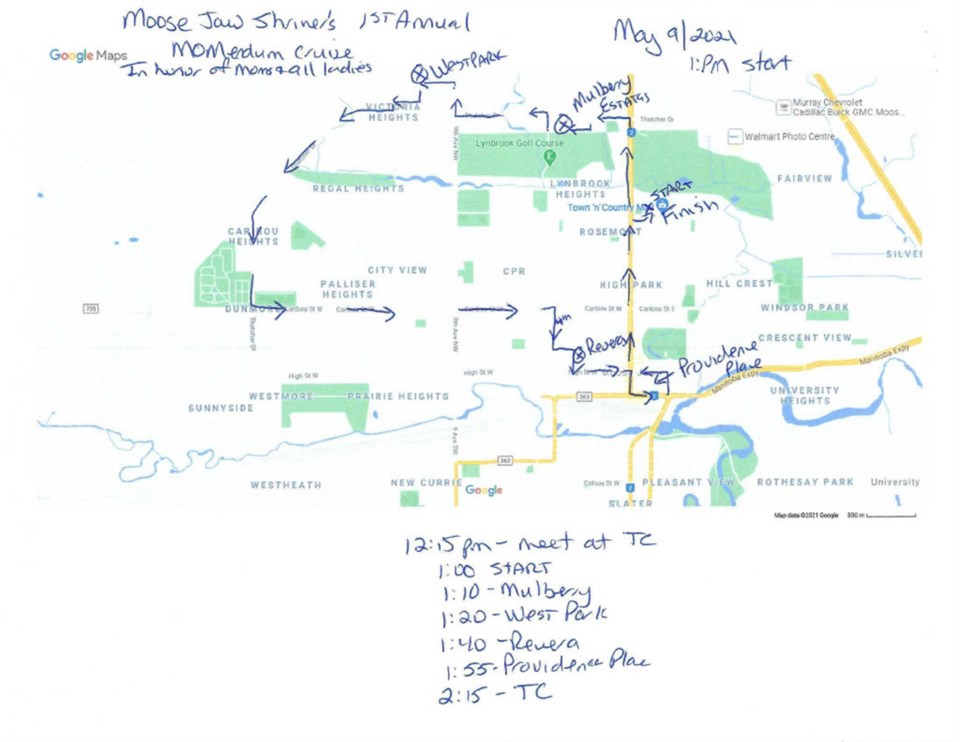 Moose Jaw Shriner's 1ST Annual
MOMerdum Cruise
In honor of moms & all ladies
May 9/2021
1:PM start
Google Maps
WESTPARK
Mulberry
ESTATES
VICTORIA
HEIGHTS
Thatcher Dr
Murray Chevrolet
Cadillac Buick GMC Moos...
Walmart Photo Centre
Lynbrook Golf Course
9th Ave NW
7
FAIRVIEW
REGAL HEIGHTS
LYNBROOK
HEIGHTS
START
Town 'n' Country M
Finish
CARIBOU
HEIGHTS
ROSEMONT
SILVER
CITY VIEW
CPR
PALLISER
HEIGHTS
HIGH PARK
HILL CREST
WINDSOR PARK
735
DUNMORE
Caribou St W
Caribou St W
Caribou St E
Thatcher Dr
9th Ave NW
Revera
CRESCENT VIEW
Providence
Place
Manitoba Expy
Manitoba Expy
High St W
High St W
WESTMORE
PRAIRIE HEIGHTS
363
UNIVERSITY
HEIGHTS
SUNNYSIDE
9 Ave SW
363
WESTHEATH
NEW CURRIE
Google
7
PLEASANT VIEW
ROTHESAY PARK
University
SLATER
Map data ©2021 Google
500 m
12:15 pm - meet at TC
1:00 START
1:10 - Mulberry
1:20 - West Park
1:40 - Revera
1:55 - Providence Place
2:15 - TC